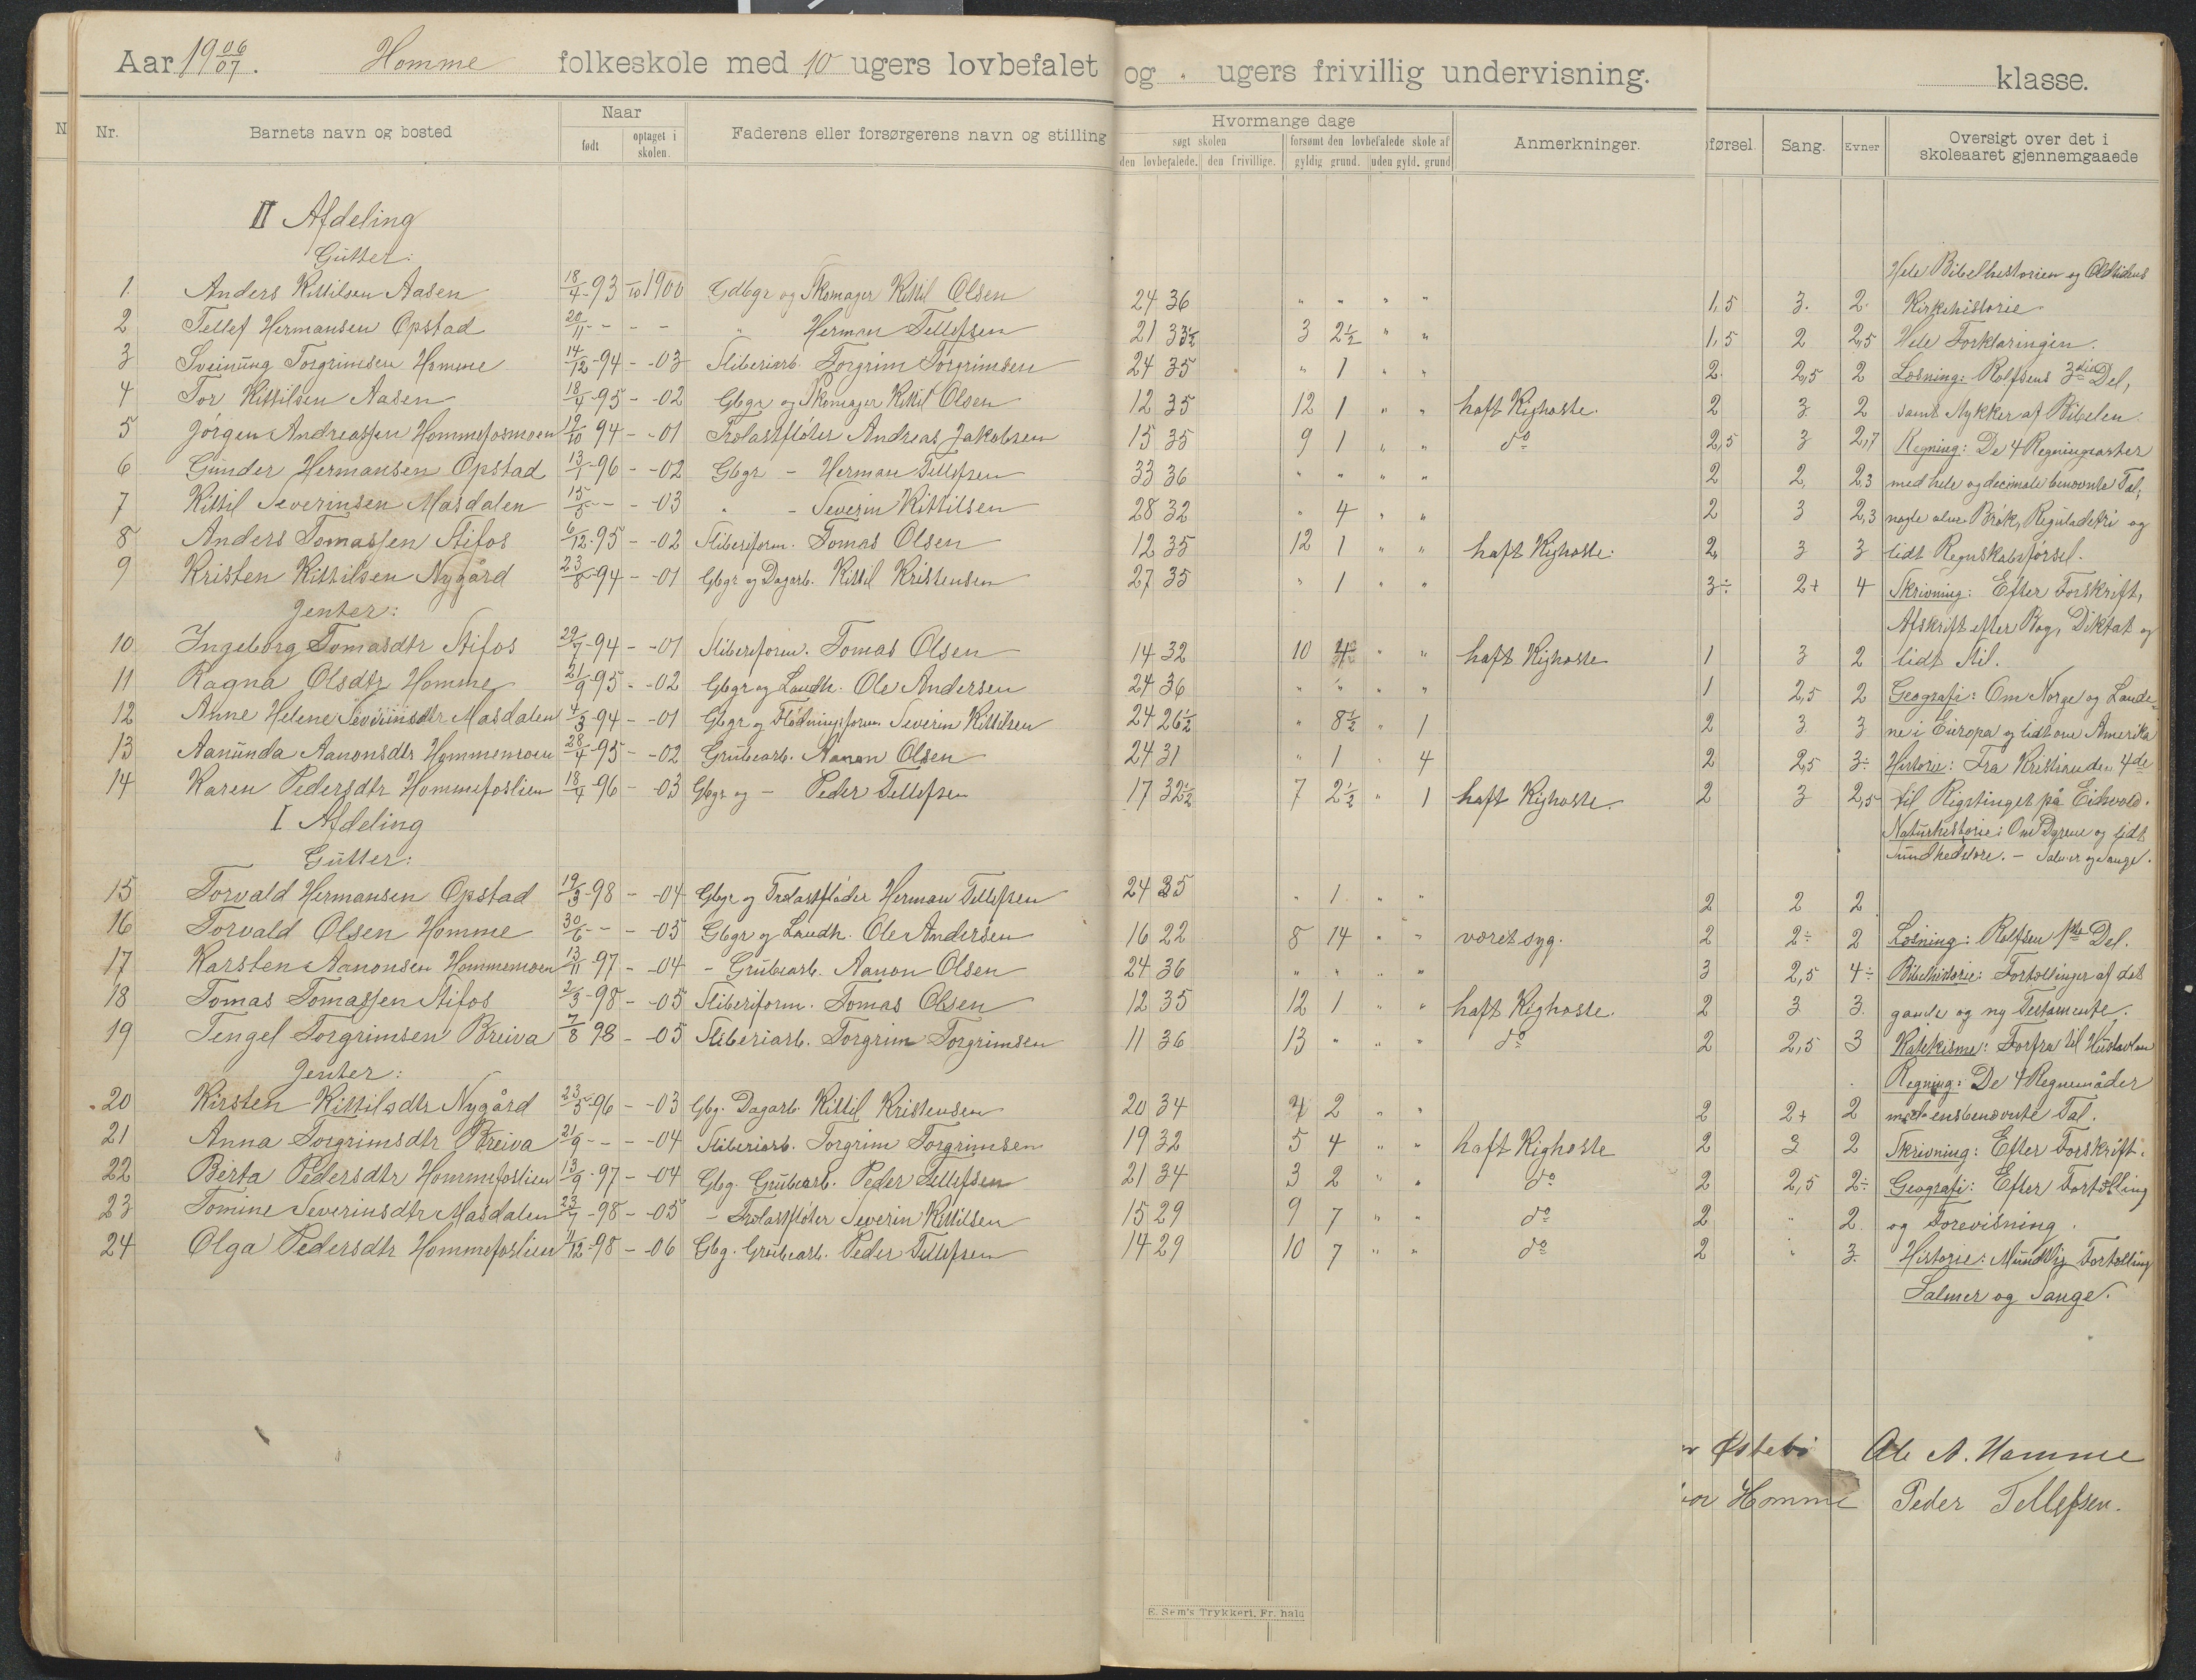 Aar 19 06/07. Homme folkeskole med 10 ugers lovbefalet og " ugers frivillig undervisning. klasse.
Nr. Barnets navn og bosted Naar født optaget i skolen. Faderens eller forsørgerens navn og stilling Hvormange dage søgt skolen den lovbefalede. den frivillige. forsømt den lovbefalede skole af gyldig grund. uden gyld. grund Anmerkninger. førsel. Sang. Evner Oversigt over det i skoleaaret gjennemgaaede
II Afdeling
Gutter: Hele Bibelhistorien og Oldtidens
1. Anders Kittilsen Aasen 18/4-93 -/10 1900 Gdbgr og Skomager Kittil Olsen 24 36 " " " " 1,5 3. 2. Kirkehistorie
2 Tellef Hermansen Opstad 20/11 - - - - " Herman Tellefsen 21 33½ 3 2½ " " 1,5 2 2,5 Hele Forklaringen.
3 Sveinung Torgrimsen Homme 14/12-94 - -03 Sliberiarb. Torgrim Torgrimsen 24 35 " 1 " " 2. 2,5 2 Læsning: Rolfsens 3die Del,
4 Tor Kittilsen Aasen 18/4-95 - -02 Gbgr og Skomager Kittil Olsen 12 35 12 1 " " haft Kighoste. 2 3 2 samt stykker af Bibelen.
5 Jørgen Andreassen Hommefosmoen 19/10 94 - -01 Trælastfløter Andreas Jakobsen 15 35 9 1 " " do 2,5 3 2,7 Regning: De 4 Regningsarter
6 Gunder Hermansen Opstad 13/1-96 - -02 Gbgr - Herman Tellefsen 33 36 " " " " 2 2, 2,3 med hele og decimale benævnte Tal,
7 Kittil Severinsen Masdalen 15/5 - - -03 " - Severin Kittilsen 28 32 " 4 " " 2 3 2,3 nogle alm. Brøk, Reguladetri og
8 Anders Tomassen Stifos 6/12-95 - -02 Sliberiform. Tomas Olsen 12 35 12 1 " " haft Kighoste. 2, 3 3 lidt Regnskabsførsel.
9 Kristen Kittilsen Nygård 23/8-94 - -01 Gbgr og Dagarb. Kittil Kristensen 27 35 " 1 " " 3÷ 2+ 4 Skrivning: Efter Forskrift,
Jenter: Afskrift efter Bog, Diktat og
10 Ingeborg Tomasdtr Stifos 29/7-94 - -01 Sliberiform. Tomas Olsen 14 32 10 4 " " haft Kighoste 1 3 2 lidt Stil.
11 Ragna Olsdtr Homme 21/9-95 - -02 Gbgr og Landh. Ole Andersen 24 36 " " " " 1 2,5 2 Geografi: Om Norge og Lande-
12 Anne Helene Severinsdtr Masdalen 4/3-94 - -01 Gbgr og Flødningsform. Severin Kittilsen 24 26½ " 8½ " 1 2 3 3 ne i Europa og lidt om Amerika
13 Aanunda Aanonsdtr Hommemoen 28/4-95 - -02 Grubearb. Aanon Olsen 24 31 " 1 " 4 2 2,5 3÷ Historie: Fra Kristian den 4de
14 Karen Pedersdtr Hommefoslien 18/4-96 - 03 Gbgr og - Peder Tellefsen 17 32½ 7 2½ " 1 haft Kighoste. 2 3 2,5 til Rigstinget på Eidsvold.
I Afdeling Naturhistorie: Om Dyrene og lidt
Gutter: Sundhedslære. - Salmer og Sange.
15 Torvald Hermansen Opstad 19/3-98 - -04 Gbgr og Trælastfløder Herman Tellefsen 24 35 " 1 " " 2 2 2
16 Torvald Olsen Homme 30/6 - - -05 Gbgr og Landh. Ole Andersen 16 22 8 14 " " været syg. 2 2÷ 2 Læsning: Rolfsen 1ste Del.
17 Karsten Aanonsen Hommemoen 13/11-97 - -04 - Grubearb. Aanon Olsen 24 36 " " " " 3 2,5 4÷ Bibelhistorie: Fortællinger af det
18 Tomas Tomassen Stifos 2/3-98 - -05 Sliberiform. Tomas Olsen 12 35 12 1 " " haft Kighoste. 2 3 3. gamle og ny Testamente.
19 Tengel Torgrimsen Breiva 7/8 98 - -05 Sliberiarb. Torgrim Torgrimsen 11 36 13 " " " do 2 2,5 3 Katekisme: Forfra til Hustavlen
Jenter: Regning: De 4 Regnemåder
20 Kirsten Kittilsdtr Nygård 23/5-96 - -03 Gbg. Dagarb. Kittil Kristensen 20 34 4 2 " " 2 2+ 2 med ensbenævnte Tal.
21 Anna Torgrimsdtr Breiva 21/9 - - -04 Sliberiarb. Torgrim Torgrimsen 19 32 5 4 " " haft Kighoste 2 3 2 Skrivning: Efter Forskrift.
22 Berta Pedersdtr Hommefoslien 13/9-97 - -04 Gbg. Grubearb. Peder Tellefsen 21 34 3 2 " " do 2 2,5 2÷ Geografi: Efter Fortælling
23 Tomine Severinsdtr Masdalen 23/7-98 - -05 - Trælastfløter Severin Kittilsen 15 29 9 7 " " do 2 " 2 og Forevisning.
24 Olga Pedersdtr Hommefoslien 11/12-98 - -06 Gbg. Grubearb. Peder Tellefsen 14 29 10 7 " " do 2 " 3. Historie: Mundtlig Fortælling
Salmer og Sange.
Østebø Ole A. Homme
Homme Peder Tellefsen.
E. Sem's Trykkeri, Fr. hald